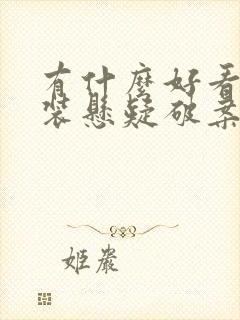 有什麼好看
裝懸疑破案
姬嚴